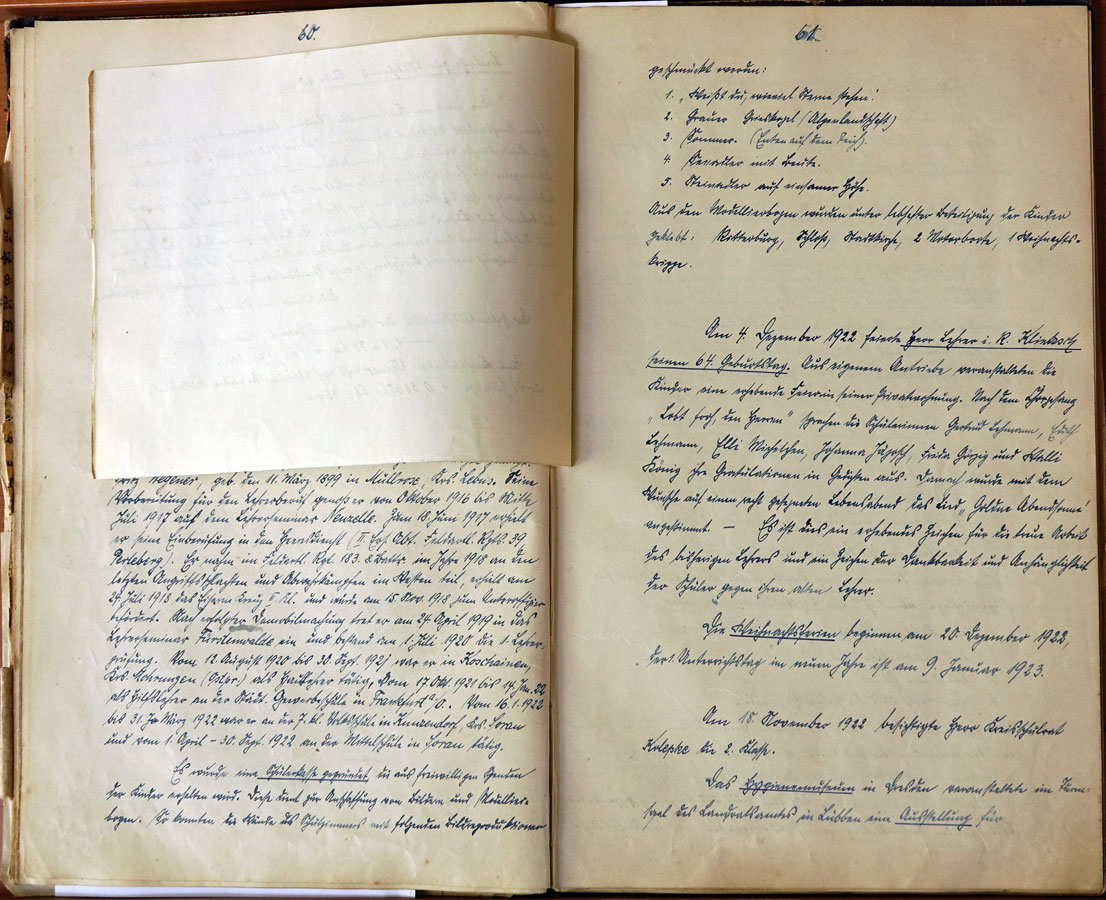 60.
Fritz Wegener, geb. den 11. März 1899 in Müllrose, Krs. Lebus. Seine
Vorbereitung für den Lehrerberuf genoß er von Oktober 1916 bis Mitte
Juli 1917 auf dem Lehrerseminar Neuzelle. Zum 18. Juni 1917 erhielt
er seine Einberufung in den Heeresdienst (II. Ers. Abt. Feldartl. Rgts. 39
Perleberg). Er nahm im Feldartl. Rgt. 183. 8. Battr. im Jahre 1918 an den
letzten Angriffsschlachten und Abwehrkämpfen im Westen teil, erhielt am
24. Juli 1918 das Eiserne Kreuz II. Kl. und wurde am 15. Nov. 1918 zum Unteroffizier
befördert. Nach erfolgter Demobilmachung trat er am 24. April 1919 in das
Lehrerseminar Fürstenwalde ein und bestand am 1. Juli 1920 die 1. Lehrer-
prüfung. Vom 12. August 1920 bis 30. Sept. 1921 war er in Koschainen,
Krs. Mohrungen (Ostpr.) als Hauslehrer tätig, vom 17. Okt. 1921 bis 14. Jan. 22
als Hilfslehrer an der Städt. Gewerbeschule in Frankfurt a/O. Vom 16. 1. 1922
bis 31. März 1922 war er an der 7. kl. Volksschule in Kunzendorf, Krs. Sorau
und vom 1. April – 30. Sept. 1922 an der Mittelschule in Sorau tätig.
Es wurde eine Schülerkasse gegründet die aus freiwilligen Spenden
der Kinder erhalten wird. Diese dient zur Anschaffung von Bildern und Modellier-
bogen. So konnten die Wände des Schulzimmers mit folgenden Bildreproduktionen
61.
geschmückt werden:
1. „Weißt du, wieviel Sterne stehen“.
2. Grauer Grieskogel (Alpenlandschaft)
3. Sommer. (Enten auf dem Teich).
4. Seeadler mit Beute.
5. Steinadler auf einsamer Höhe.
Aus den Modellierbogen wurden unter lebhafter Beteiligung der Kinder
geklebt: Ritterburg, Schloß, Stadtkirche, 2 Motorboote, 1 Weihnachts-
krippe.
Am 4. Dezember 1922 feierte Herr Lehrer i. R. Klinkosch
seinen 64. Geburtstag. Aus eigenem Antriebe veranstalteten die
Kinder eine erhebende Feier in seiner Privatwohnung. Nach dem Chorgesang
„Lobt froh, den Herrn“ sprachen die Schülerinnen Gertrud Lehmann, Edith
Lehmann, Elli Michelchen, Johanna Jäzosch, Frida und Walli
König ihre Gratulationen in Gedichten aus. Danach wurde mit dem
Wunsche auf einen recht gesegneten Lebensabend das Lied „Goldne Abendsonne
angestimmt. — Es ist dies ein erhebendes Zeichen für die treue Arbeit
des bisherigen Lehrers und ein Zeichen der Dankbarkeit und Anhänglichkeit
der Schüler gegen ihren alten Lehrer.
Die Weihnachtsferien beginnen am 20. Dezember 1922,
der 1. Unterrichtstag im neuen Jahre ist am 9. Januar 1923.
Am 18. November 1922 besichtigte Herr Kreisschulrat
Kolepke die 2. Klasse.
Das Hygienemuseum in Dresden veranstaltete im Turn-
saal des Landratsamtes in Lübben eine Ausstellung für